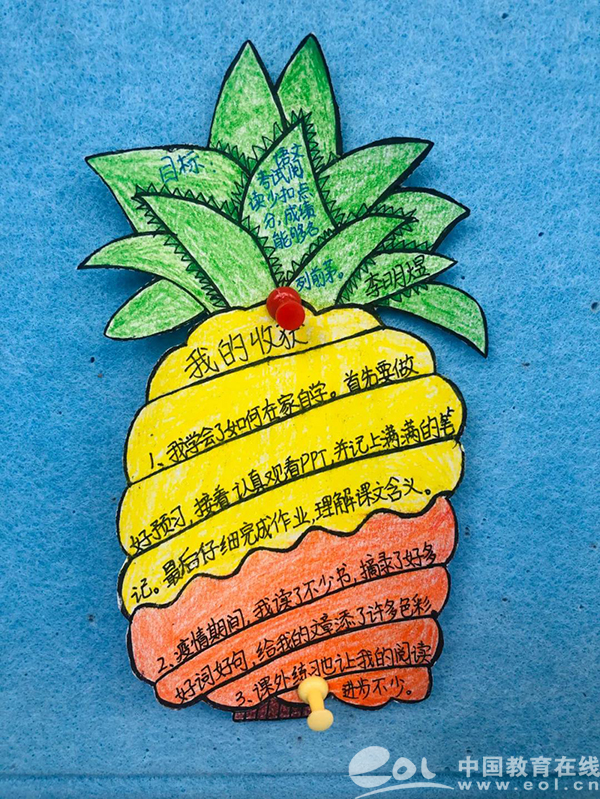 目标
语文
考试阅
读少扣点
分,成绩
能够名
列前茅。
李明煜
我的收获
1、我学会了如何在家自学。首先要做
好预习,接着认真观看PPT,并记上满满的笔
记。最后仔细完成作业,理解课文含义。
2、疫情期间,我读了不少书,摘录了好多
好词好句,给我的文章添了许多色彩
3、课外练习也让我的阅读
进步不少。
eol 中国教育在线
www.eol.cn